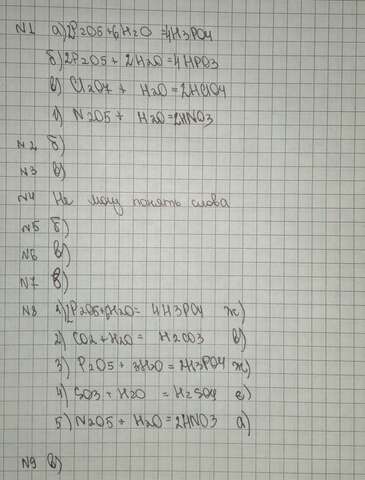 N1 а) 2P2O5+6H2O=4H3PO4
б) 2P2O5+2H2O=4HPO3
в) Cl2O7 + H2O=2HClO4
г) N2O5+ H2O=2HNO3
N2 б)
N3 в)
N4 Не могу понять слова
N5 б)
N6 в)
N7 в)
N8 1) 2P2O5+6H2O= 4H3PO4 ж)
2) CO2+H2O= H2CO3 в)
3) P2O5+3H2O=2H3PO4 ж)
4) SO3+H2O =H2SO4 е)
5) N2O5+H2O=2HNO3 а)
N9 в)